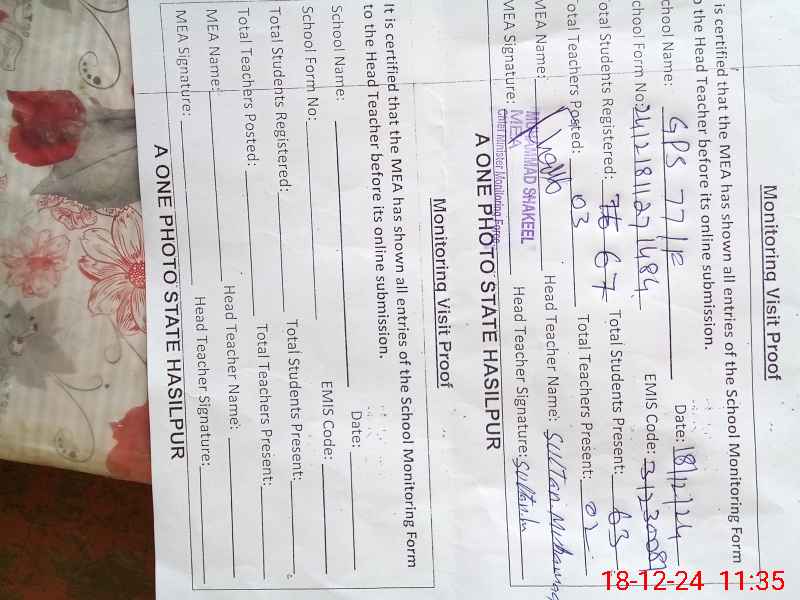 Monitoring Visit Proof
is certified that the MEA has shown all entries of the School Monitoring Form
to the Head Teacher before its online submission.
School Name: GPS 77/F Date: 18/12/24
School Form No: 24121811271484 EMIS Code: 31230081
Total Students Registered: 67 Total Students Present: 63
Total Teachers Posted: 03 Total Teachers Present: 02
MEA Name: MUHAMMAD SHAKEEL Head Teacher Name: Sultan Muhammad
MEA Signature: MEA Head Teacher Signature:
Chief Minister Monitoring Force
A ONE PHOTO STATE HASILPUR
Monitoring Visit Proof
It is certified that the MEA has shown all entries of the School Monitoring Form
to the Head Teacher before its online submission.
School Name: Date:
School Form No: EMIS Code:
Total Students Registered: Total Students Present:
Total Teachers Posted: Total Teachers Present:
MEA Name: Head Teacher Name:
MEA Signature: Head Teacher Signature:
A ONE PHOTO STATE HASILPUR
18-12-24 11:35